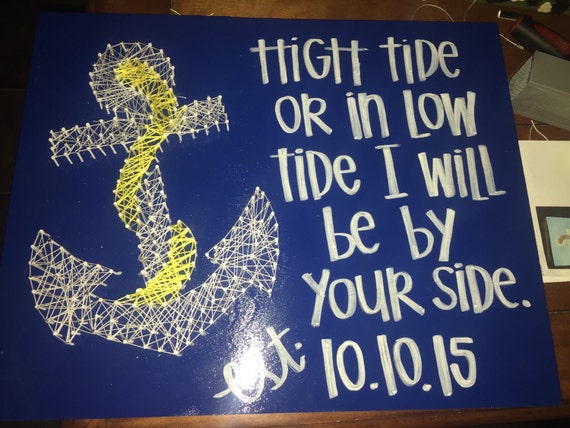 HIGH TIDE
OR IN LOW
TIDE I WILL
be by
YOUR SIDE.
est. 10.10.15